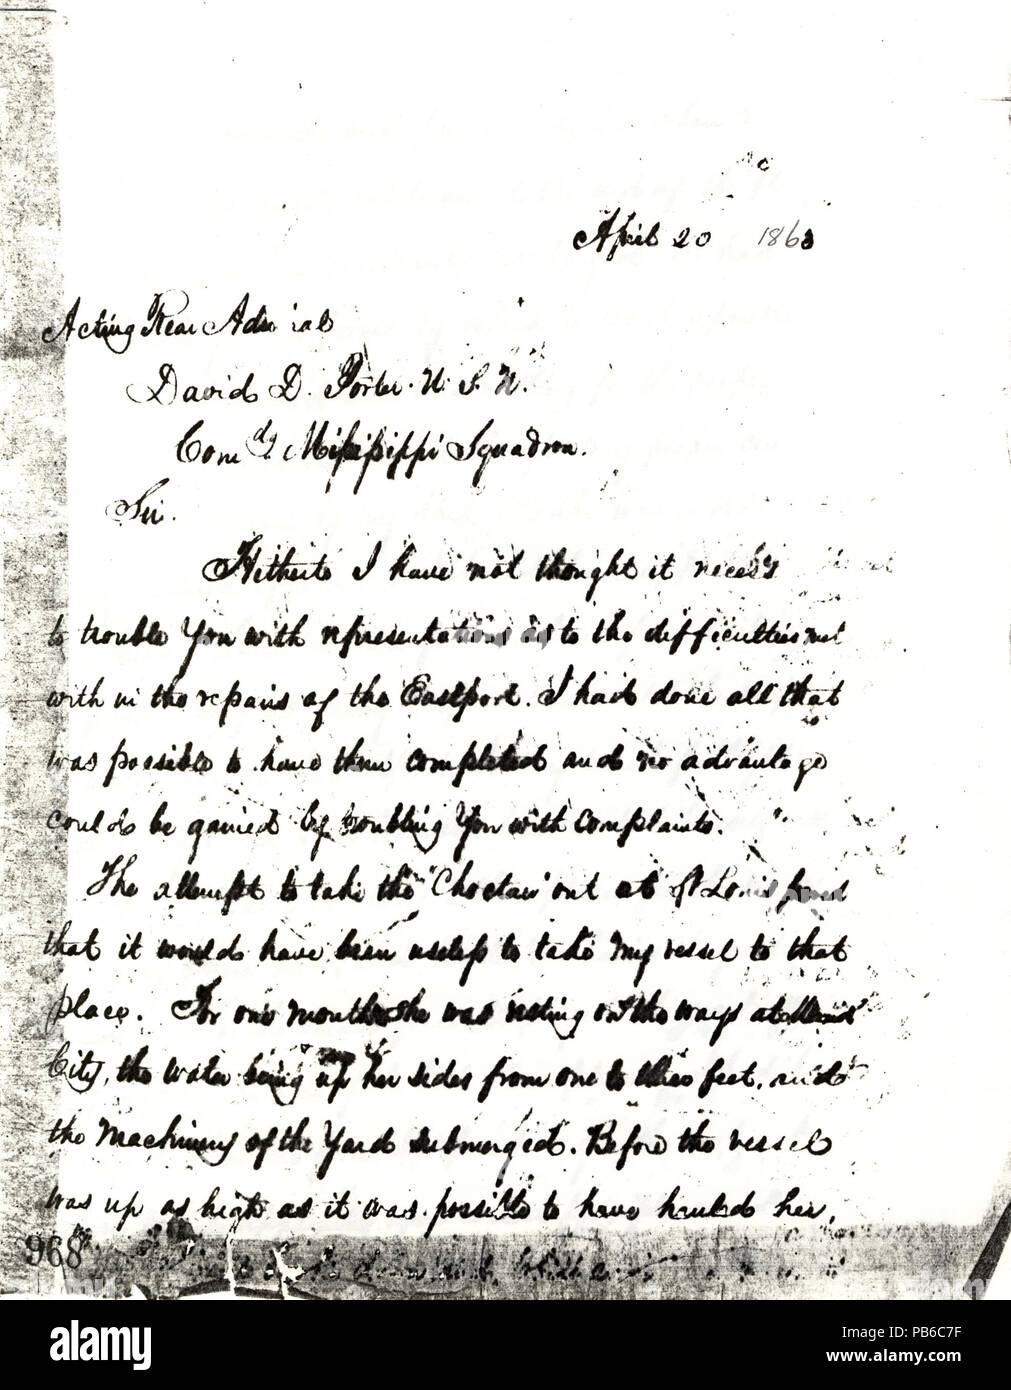 April 20 1863
Acting Rear Admiral
David D. Porter. U. S. N.
Comdg Mississippi Squadron.
Sir.
Hitherto I have not thought it
to trouble You with representations as to the difficulties met
with in the repairs of the Eastport. I had done all that
was possible to have them completed and no advantage
could be gained by troubling You with complaints.
The attempt to take the "Choctaw" out at St Louis
that it would have been useless to take my vessel to that
place. For one month she was resting on the ways at Mound
City, the water being up her sides from one to three feet, and
the Machinery of the Yard submerged. Before the vessel
was up as high as it was possible to have hauled her,
968
alamy
Image ID: PB6C7F
www.alamy.com